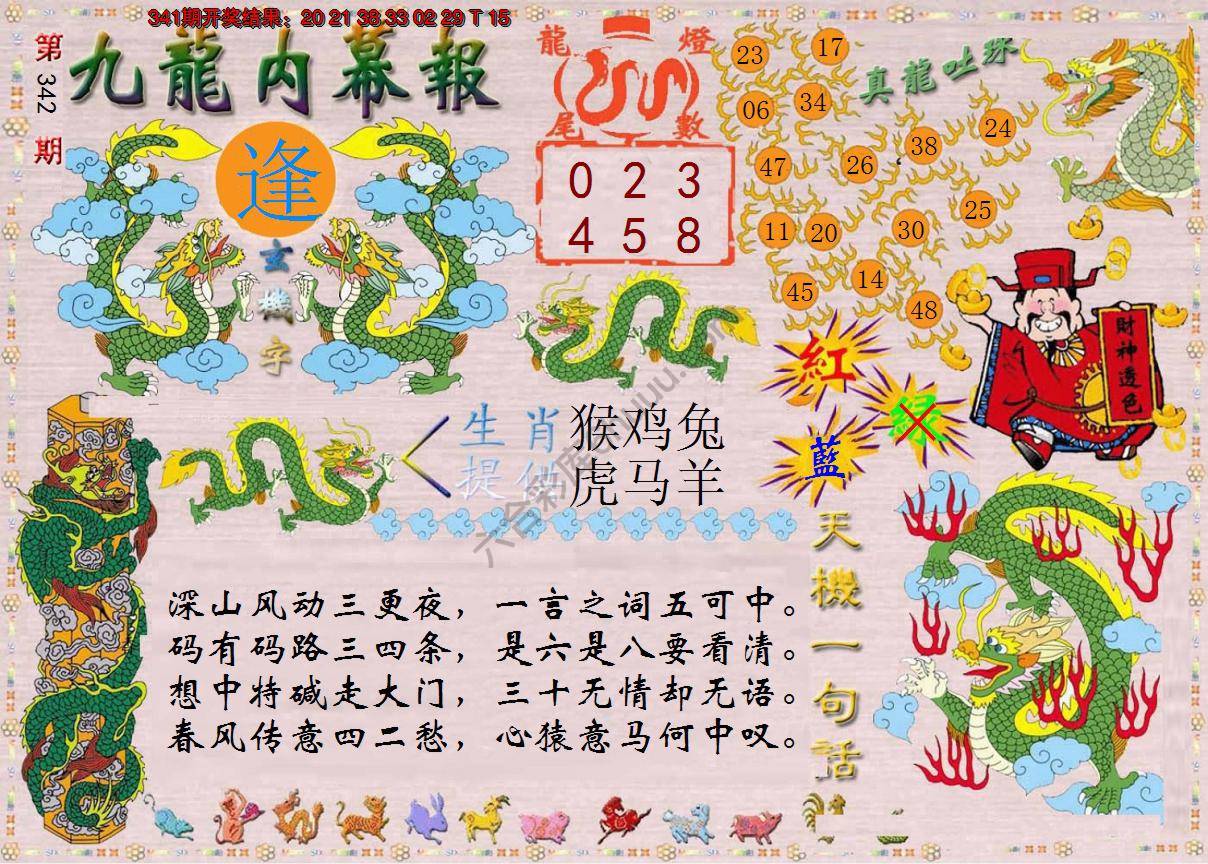 341期开奖结果：20 21 38 33 02 29 T 15
第342期
九龍内幕報
逢
玄機字
龍燈
尾數
0 2 3
4 5 8
真龍吐珠
23 17
06 34
38 24
47 26
25
11 20 30
45 14
48
財神透色
紅
绿
藍
生肖 猴鸡兔
提供 虎马羊
天機一句話
深山风动三更夜，一言之词五可中。
码有码路三四条，是六是八要看清。
想中特碱走大门，三十无情却无语。
春风传意四二愁，心猿意马何中叹。